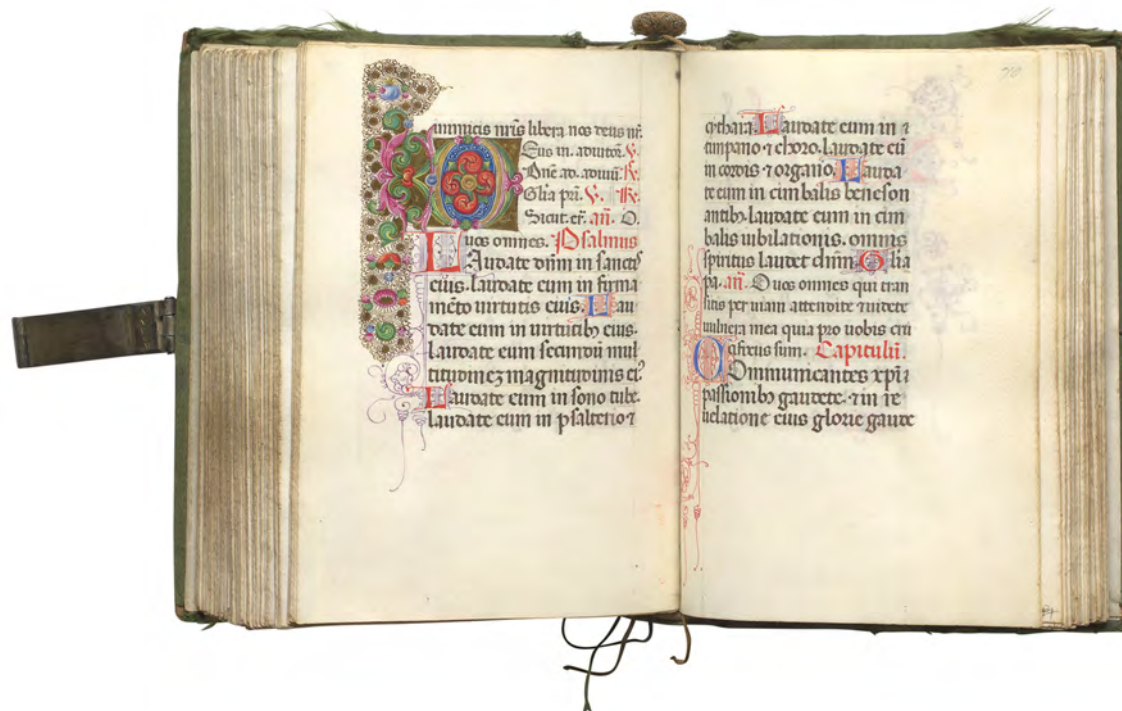 inimicis nr̄is libera nos deus nr̄.
Deus in. adiutoꝛ. V.
Dn̄e ad. adiuū. R.
Glia pri. V. R.
Sicut. er̄. an̄. O.
uos omnes. Psalmus
Laudate dn̄m in sanctis
eius. laudate eum in firma
mēto uirtutis eius. Lau
date eum in uirtutibꝫ eius.
laudate eum secundū mul
titudinez magnitudinis ei⁹.
Laudate eum in sono tube.
laudate eum in psalterio ⁊
cythara. Laudate eum in
timpano ⁊ choro. laudate eū
in cordis ⁊ organo. Lauda
te eum in cimbalis beneson
antibꝫ. laudate eum in cim
balis iubilationis. omnis
spiritus laudet dn̄m. Glia
pa. an̄. O uos omnes qui tran
sitis per uiam attendite ⁊ uidete
uulnera mea quia pro uobis cru
cifixus sum. Capitulū.
Communicantes xp̄i
passionibꝫ gaudete. ⁊ in re
uelatione eius glorie gaude